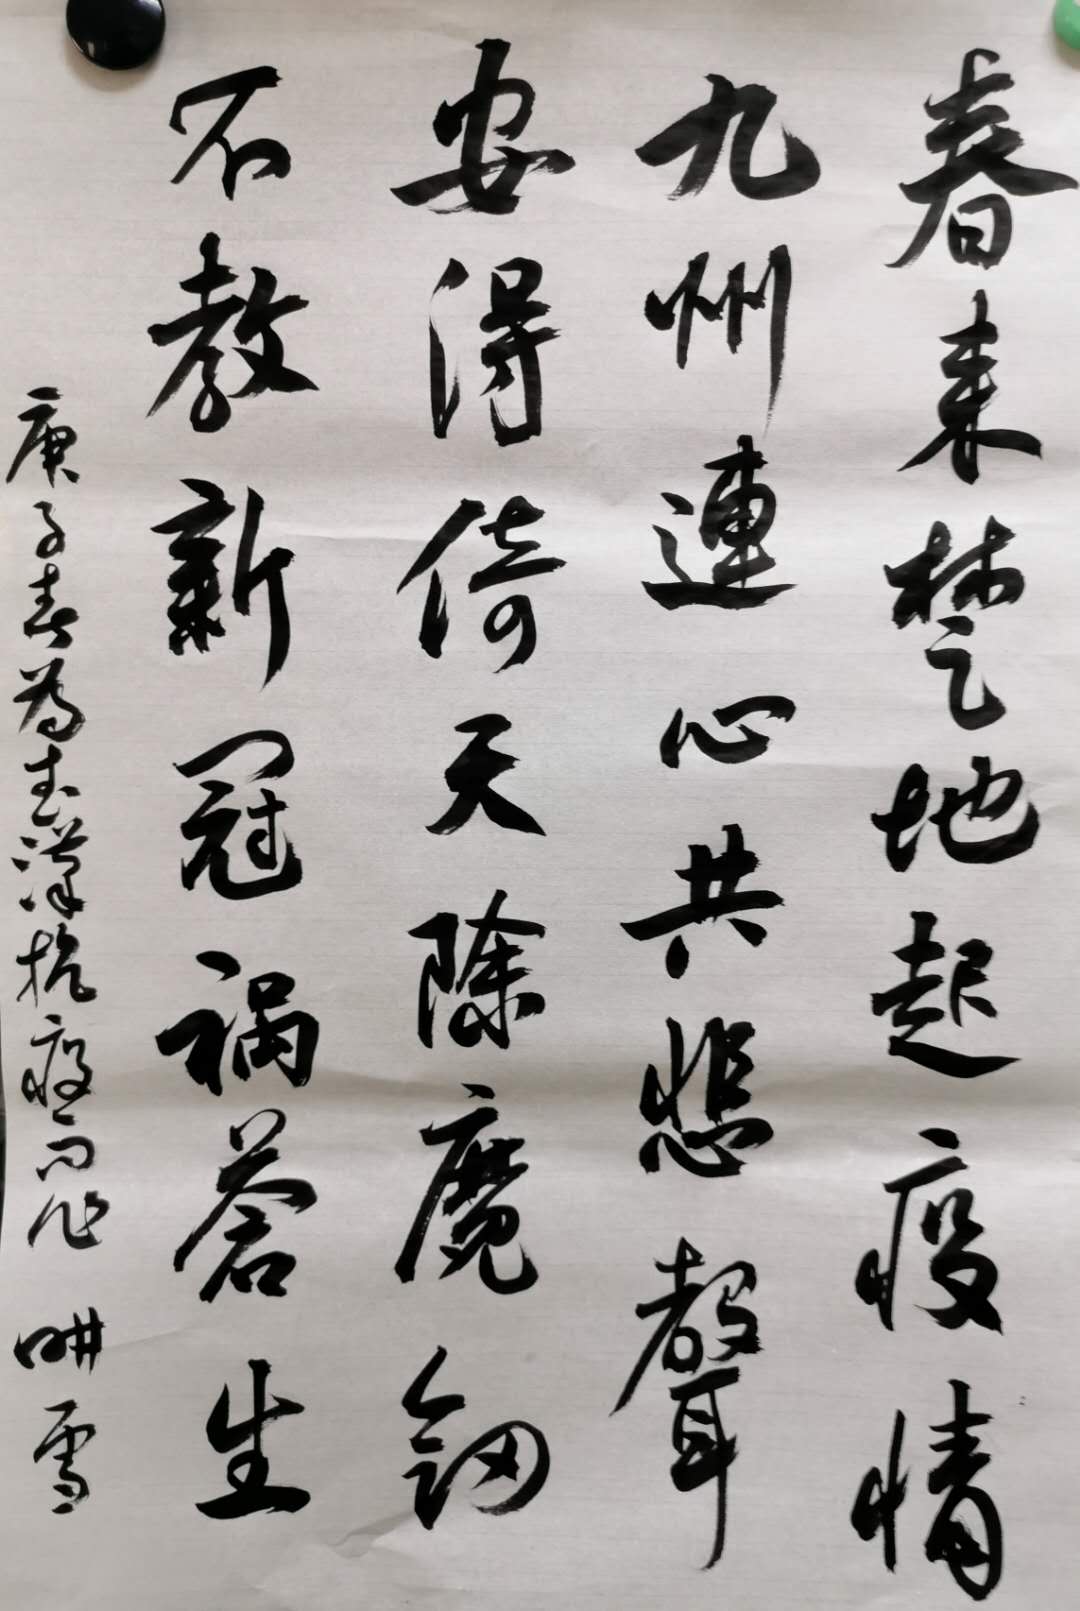 春来楚地起疫情
九州連心共悲聲
安得倚天除魔劍
不教新冠祸苍生
庚子春为武漢抗疫而作 畊雪